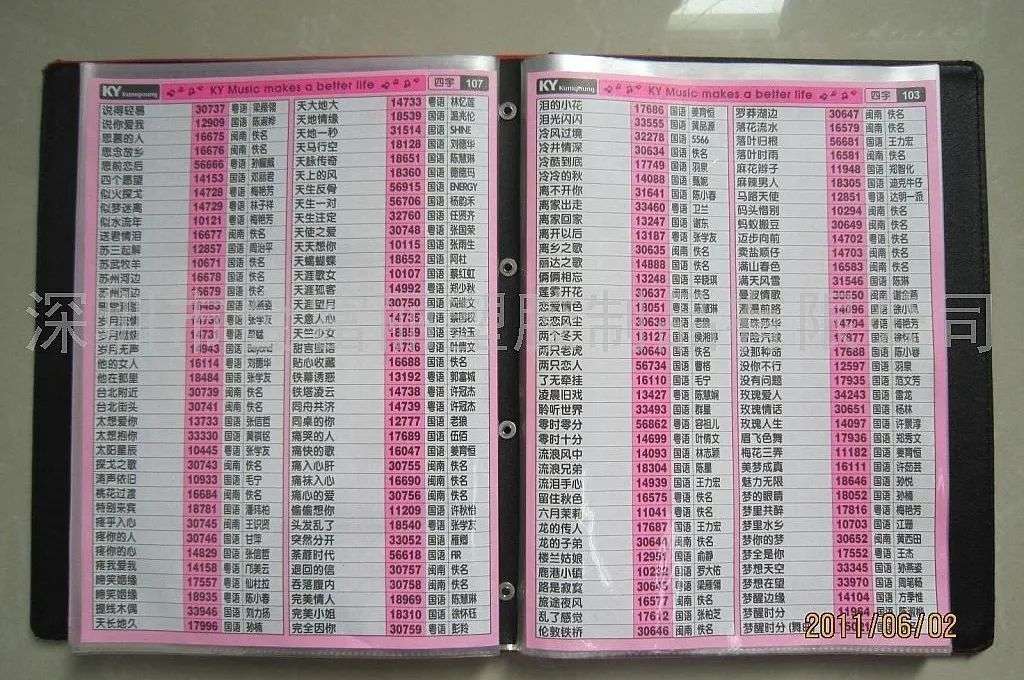 KY KY Music makes a better life 四字 107
说得轻易 30737 粤语 梁雁翎
说你爱我 12909 国语 陈淑桦
思慕的人 16675 闽南 佚名
思念故乡 16676 闽南 佚名
思前恋后 56666 粤语 孙耀威
四个愿望 14153 国语 邓丽君
似火探戈 14728 粤语 梅艳芳
似梦迷离 14729 粤语 林子祥
似水流年 10121 粤语 梅艳芳
送君情泪 16677 闽南 佚名
苏三起解 12857 国语 周治平
苏武牧羊 10671 国语 佚名
苏州河边 16678 国语 佚名
岁月无声 14943 国语 Beyond
他的女人 16114 粤语 刘德华
他在那里 18484 国语 张学友
台北附近 30739 闽南 佚名
台北街头 30741 闽南 佚名
太想爱你 13733 国语 张信哲
太想抱你 33330 国语 黄骐铭
太阳星辰 10445 粤语 张学友
探戈之歌 30743 闽南 佚名
涛声依旧 10933 国语 毛宁
桃花过渡 16684 闽南 佚名
特别来宾 18781 国语 潘玮柏
疼乎入心 30745 闽南 王识贤
疼你的人 30746 闽南 甘萍
疼你的心 14829 国语 张信哲
疼我爱我 14158 粤语 邝美云
啼笑姻缘 17557 粤语 仙杜拉
啼笑姻缘 18935 粤语 陈小春
提线木偶 33946 国语 刘力扬
天长地久 17996 国语 孙楠
天大地大 14733 粤语 林忆莲
天地情缘 18539 国语 温兆伦
天地一秒 31514 国语 SHINE
天马行空 18128 国语 刘德华
天脉传奇 18651 国语 陈慧琳
天上的风 18360 国语 德德玛
天生反骨 56915 国语 ENERGY
天生一对 56706 国语 杨韵禾
天生注定 32760 国语 任贤齐
天使之爱 30748 粤语 张国荣
天天想你 10115 国语 张雨生
天蝎蝴蝶 18652 国语 阿杜
天涯歌女 10107 国语 蔡红虹
天涯孤客 14992 粤语 郑少秋
天涯望月 30750 闽南
天意人心 14735 粤语
天竺少女 18859 国语 李玲玉
甜言蜜语 14736 粤语 叶倩文
贴心收藏 16688 闽南 佚名
铁幕诱惑 13192 粤语 郭富城
铁塔凌云 14738 粤语 许冠杰
同舟共济 14739 粤语 许冠杰
同桌的你 12777 国语 老狼
痛哭的人 17689 国语 伍佰
痛快的歌 16047 国语 姜育恒
痛入心肝 30755 闽南 佚名
痛袜入心 16690 闽南 佚名
痛心的爱 30756 闽南 佚名
偷偷想你 11209 国语 许秋怡
头发乱了 18540 粤语 张学友
突然分开 33052 国语 雁卿
荼蘼时代 56618 国语 AIR
退回的信 30757 闽南 佚名
吞落腹内 30758 闽南 佚名
完美情人 18969 国语 陈慧琳
完美小姐 18310 国语 徐怀钰
完全因你 30759 粤语 彭羚
KY KY Music makes a better life 四字 103
泪的小花 17686 国语 姜育恒
泪光闪闪 33555 国语 黄品源
冷风过境 32278 国语 5566
冷井情深 30634 闽南 佚名
冷酷到底 17749 国语 羽泉
冷冷的秋 14088 国语 甄妮
离不开你 31641 国语 陈小春
离家出走 33460 粤语 卫兰
离家回家 13247 国语 谢东
离开以后 13187 粤语 张学友
离乡之歌 30635 闽南 佚名
丽达之歌 14888 国语 佚名
俩俩相忘 13248 国语 辛晓琪
莲雾开花 30637 闽南 佚名
恋爱情色 18051 粤语 陈慧琳
恋恋风尘 30639 国语 老狼
两个冬天 13127 国语 侯湘婷
两只老虎 30640 国语 佚名
两只恋人 56734 国语 曾格
了无牵挂 16110 国语 毛宁
凌晨旧戏 13427 粤语 陈慧娴
聆听世界 33493 国语 群星
零时零分 56862 粤语 容祖儿
零时十分 14699 粤语 叶倩文
流浪风中 14093 国语 林志颖
流浪兄弟 18304 国语 陈星
流泪手心 14939 国语 王力宏
留住秋色 16575 粤语 佚名
六月茉莉 11041 粤语 佚名
龙的传人 17687 国语 王力宏
龙的子弟 30644 闽南 佚名
楼兰姑娘 12951 国语 俞静
鹿港小镇 10232 国语 罗大佑
路是寂寞 30645 粤语 梁雁翎
旅途夜风 16577 闽南 佚名
乱了感觉 17612 国语 张柏芝
伦敦铁桥 30646 闽南 佚名
罗莽湖边 30647 闽南 佚名
落花流水 16579 闽南 佚名
落叶归根 56681 国语 王力宏
落叶时雨 16581 闽南 佚名
麻花辫子 11948 国语 郑智化
麻辣男人 18305 国语 迪克牛仔
马路天使 12851 粤语 达明一派
码头惜别 10294 闽南 佚名
蚂蚁搬豆 30649 闽南 佚名
迈步向前 14702 粤语 佚名
卖盐顺仔 14703 闽南 佚名
满山春色 16583 闽南 佚名
满天风雪 31546 国语 陈琳
曼波情歌 30650 闽南 谢金燕
玫瑰爱人 34243 国语 雷龙
玫瑰情话 30651 国语 杨林
玫瑰人生 14097 国语 许景淳
眉飞色舞 17936 国语 郑秀文
梅花三弄 11182 国语 姜育恒
美梦成真 16111 国语 许茹芸
魅力无限 18646 国语 孙悦
梦的眼睛 18052 国语 孙楠
梦里共醉 17816 粤语 梅艳芳
梦里水乡 10703 国语 江珊
梦你的梦 30652 闽南 黄西田
梦全是你 17552 粤语 王杰
梦想天空 33345 国语 孙燕姿
梦想在望 33970 国语 周笔畅
梦醒边缘 14104 国语 方季惟
梦醒时分 11964 国语 陈淑桦
没那种命 17688 国语 陈小春
没你不行 12597 国语 羽泉
没有问题 17935 国语 范文芳
2011/06/02